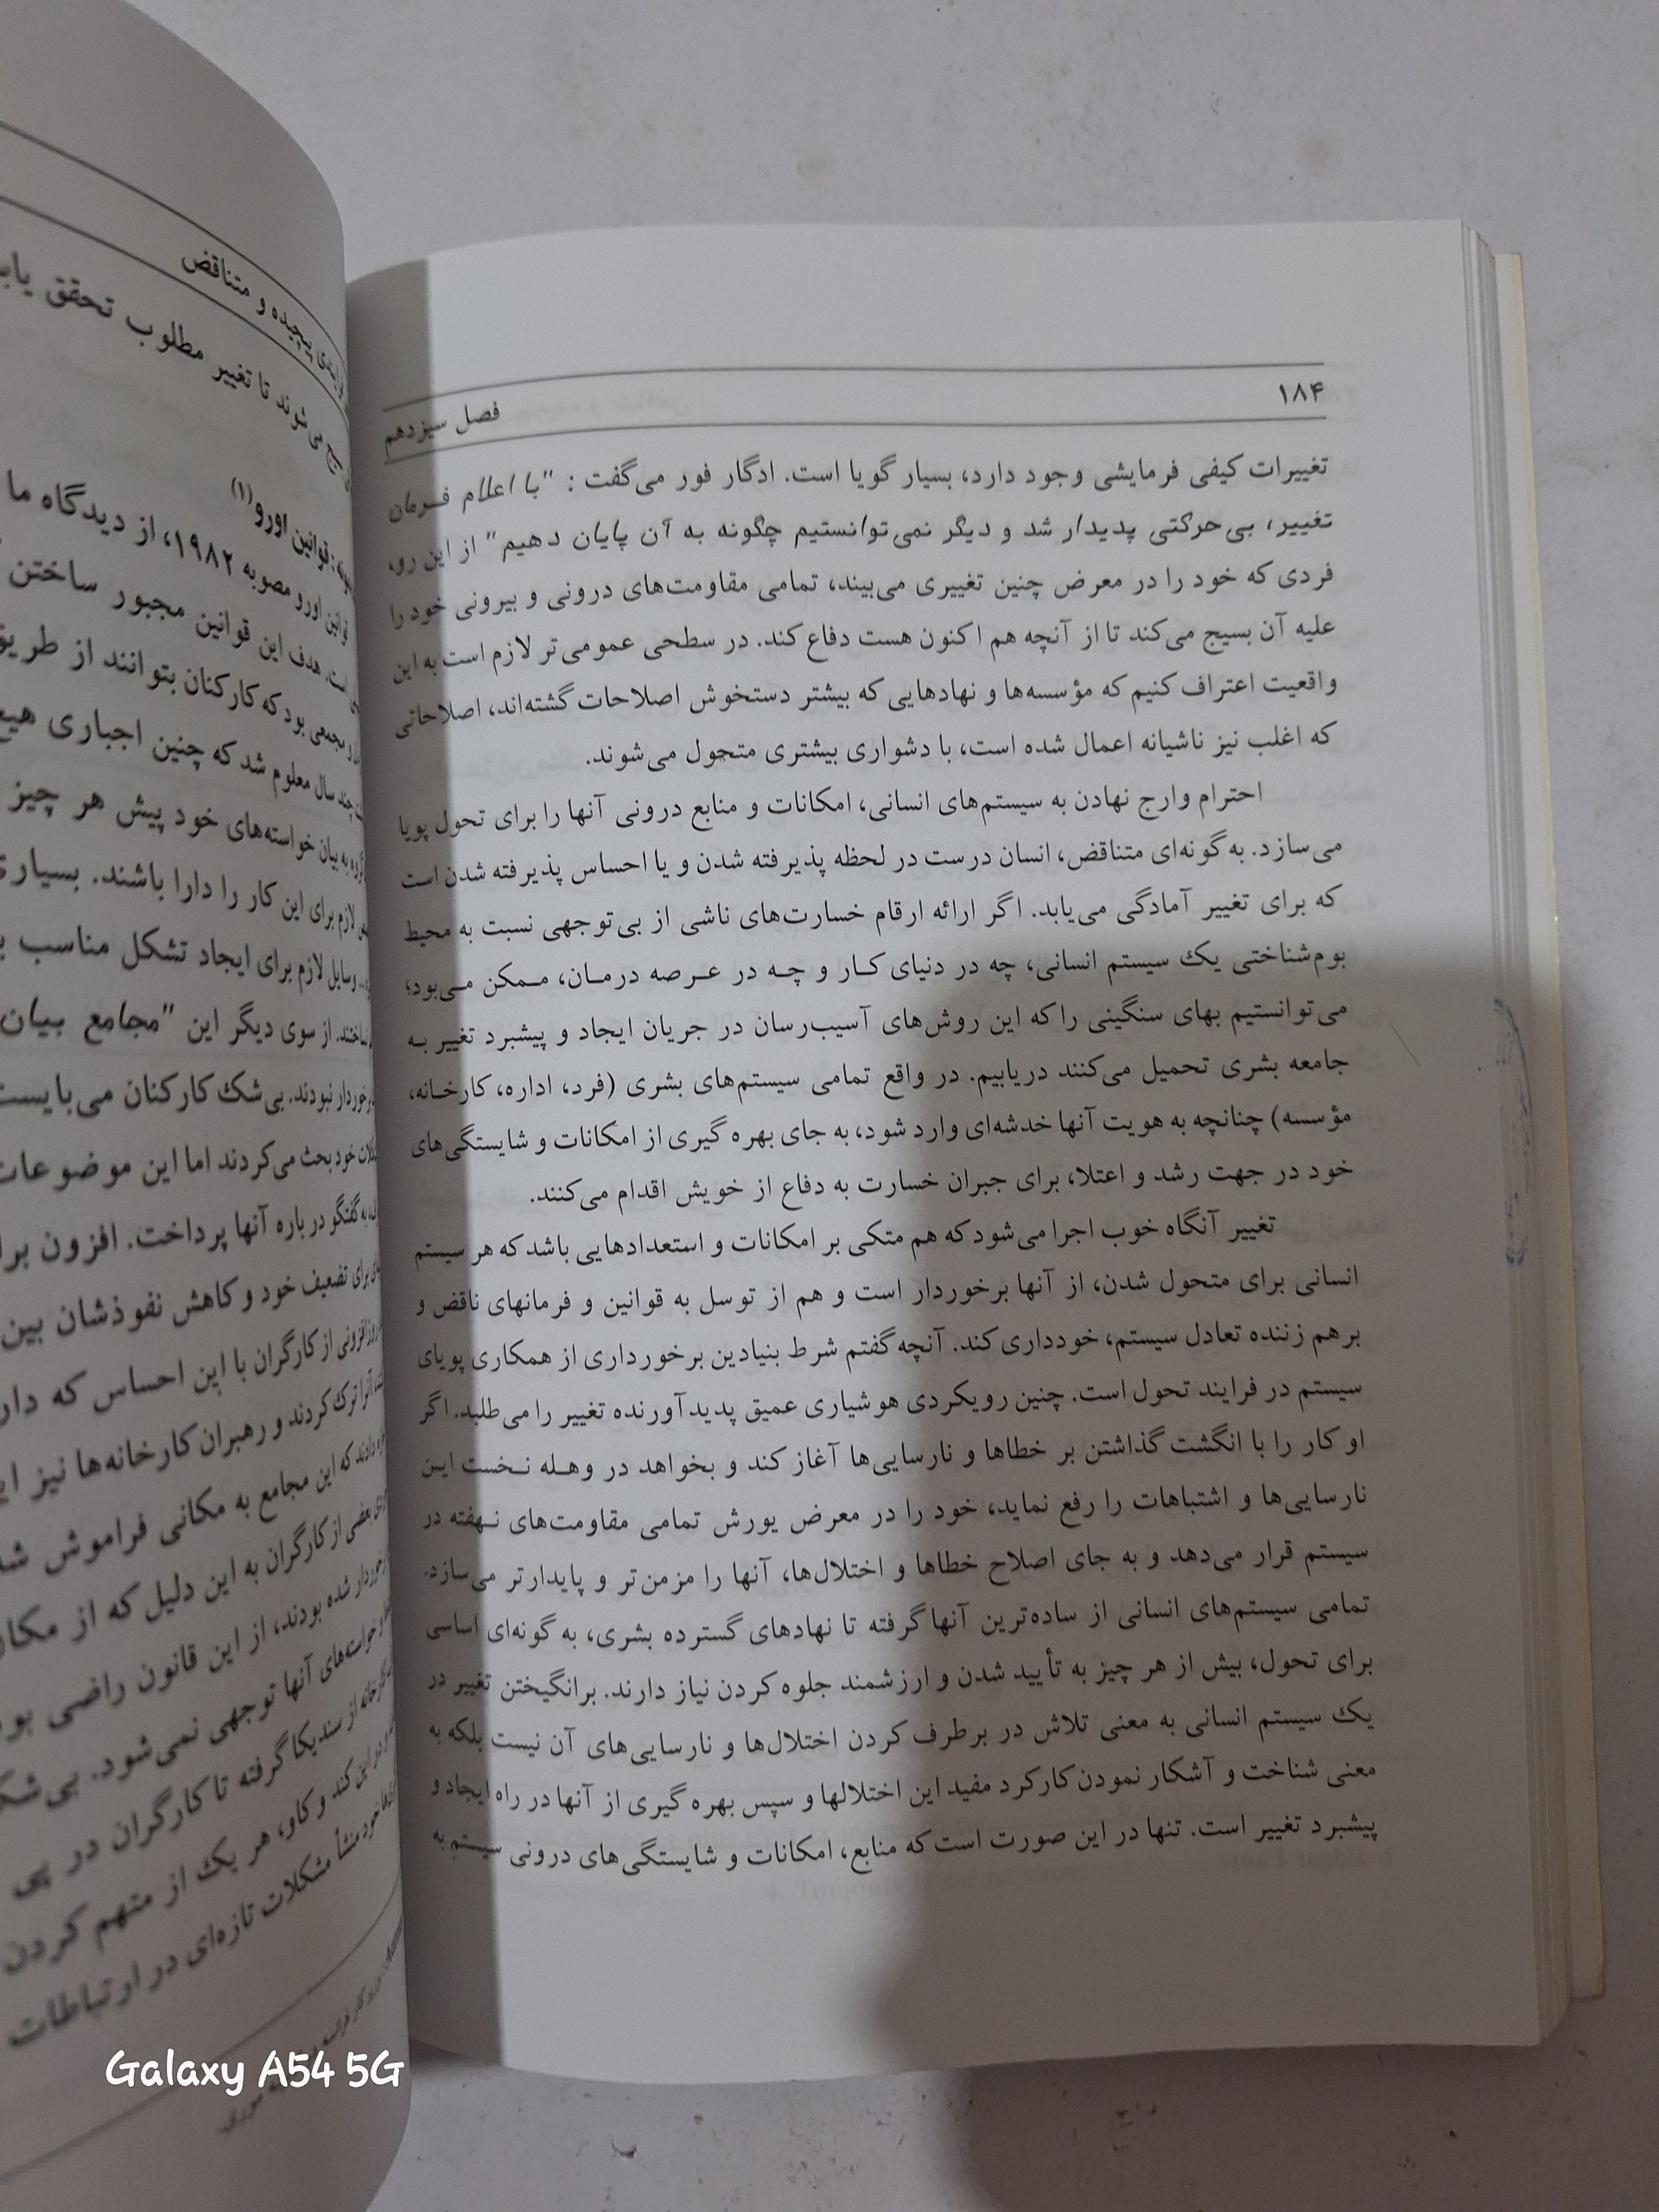 ۱۸۴
فصل سیزدهم
تغییرات کیفی فرمایشی وجود دارد، بسیار گویا است. ادگار فور می‌گفت : "با اعلام فرمان
تغییر، بی‌حرکتی پدیدار شد و دیگر نمی‌توانستیم چگونه به آن پایان دهیم" از این رو،
فردی که خود را در معرض چنین تغییری می‌بیند، تمامی مقاومت‌های درونی و بیرونی خود را
علیه آن بسیج می‌کند تا از آنچه هم اکنون هست دفاع کند. در سطحی عمومی‌تر لازم است به این
واقعیت اعتراف کنیم که مؤسسه‌ها و نهادهایی که بیشتر دستخوش اصلاحات گشته‌اند، اصلاحاتی
که اغلب نیز ناشیانه اعمال شده است، با دشواری بیشتری متحول می‌شوند.
احترام وارج نهادن به سیستم‌های انسانی، امکانات و منابع درونی آنها را برای تحول پویا
می‌سازد. به‌گونه‌ای متناقض، انسان درست در لحظه پذیرفته شدن و یا احساس پذیرفته شدن است
که برای تغییر آمادگی می‌یابد. اگر ارائه ارقام خسارت‌های ناشی از بی‌توجهی نسبت به محیط
بوم‌شناختی یک سیستم انسانی، چه در دنیای کار و چه در عرصه درمان، ممکن می‌بود،
می‌توانستیم بهای سنگینی را که این روش‌های آسیب‌رسان در جریان ایجاد و پیشبرد تغییر به
جامعه بشری تحمیل می‌کنند دریابیم. در واقع تمامی سیستم‌های بشری (فرد، اداره، کارخانه،
مؤسسه) چنانچه به هویت آنها خدشه‌ای وارد شود، به جای بهره گیری از امکانات و شایستگی‌های
خود در جهت رشد و اعتلا، برای جبران خسارت به دفاع از خویش اقدام می‌کنند.
تغییر آنگاه خوب اجرا می‌شود که هم متکی بر امکانات و استعدادهایی باشد که هر سیستم
انسانی برای متحول شدن، از آنها برخوردار است و هم از توسل به قوانین و فرمانهای ناقض و
برهم زننده تعادل سیستم، خودداری کند. آنچه گفتم شرط بنیادین برخورداری از همکاری پویای
سیستم در فرایند تحول است. چنین رویکردی هوشیاری عمیق پدیدآورنده تغییر را می‌طلبد. اگر
او کار را با انگشت گذاشتن بر خطاها و نارسایی‌ها آغاز کند و بخواهد در وهله نخست این
نارسایی‌ها و اشتباهات را رفع نماید، خود را در معرض یورش تمامی مقاومت‌های نهفته در
سیستم قرار می‌دهد و به جای اصلاح خطاها و اختلال‌ها، آنها را مزمن‌تر و پایدارتر می‌سازد.
تمامی سیستم‌های انسانی از ساده‌ترین آنها گرفته تا نهادهای گسترده بشری، به گونه‌ای اساسی
برای تحول، بیش از هر چیز به تأیید شدن و ارزشمند جلوه کردن نیاز دارند. برانگیختن تغییر در
یک سیستم انسانی به معنی تلاش در برطرف کردن اختلال‌ها و نارسایی‌های آن نیست بلکه به
معنی شناخت و آشکار نمودن کارکرد مفید این اختلالها و سپس بهره گیری از آنها در راه ایجاد و
پیشبرد تغییر است. تنها در این صورت است که منابع، امکانات و شایستگی‌های درونی سیستم به
پیچیده و متناقض
می‌شوند تا تغییر مطلوب تحقق
قوانین اورو(۱)
قوانین اورو مصوبه ۱۹۸۲، از دیدگاه ما
است. هدف این قوانین مجبور ساختن
مجمعی بود که کارکنان بتوانند از
چند سال معلوم شد که چنین اجباری
به بیان خواسته‌های خود پیش هر چیز
لازم برای این کار را دارا باشند.
وسایل لازم برای ایجاد تشکل مناسب
از سوی دیگر این "مجامع بیان
برخوردار نبودند. بی‌شک کارکنان می‌بایست
خود بحث می‌کردند اما این موضوعات
به گفتگو درباره آنها پرداخت. افزون
برای تضعیف خود و کاهش نفوذشان بین
روزافزونی از کارگران با این احساس که
آنرا ترک کردند و رهبران کارخانه‌ها نیز
که این مجامع به مکانی فراموش
بعضی از کارگران به این دلیل که از
شده بودند، از این قانون راضی
خواسته‌های آنها توجهی نمی‌شود.
کارخانه از سندیکا گرفته تا کارگران در پی
این کند و کاو، هر یک از متهم کردن
خود منشأ مشکلات تازه‌ای در ارتباطات
Galaxy A54 5G